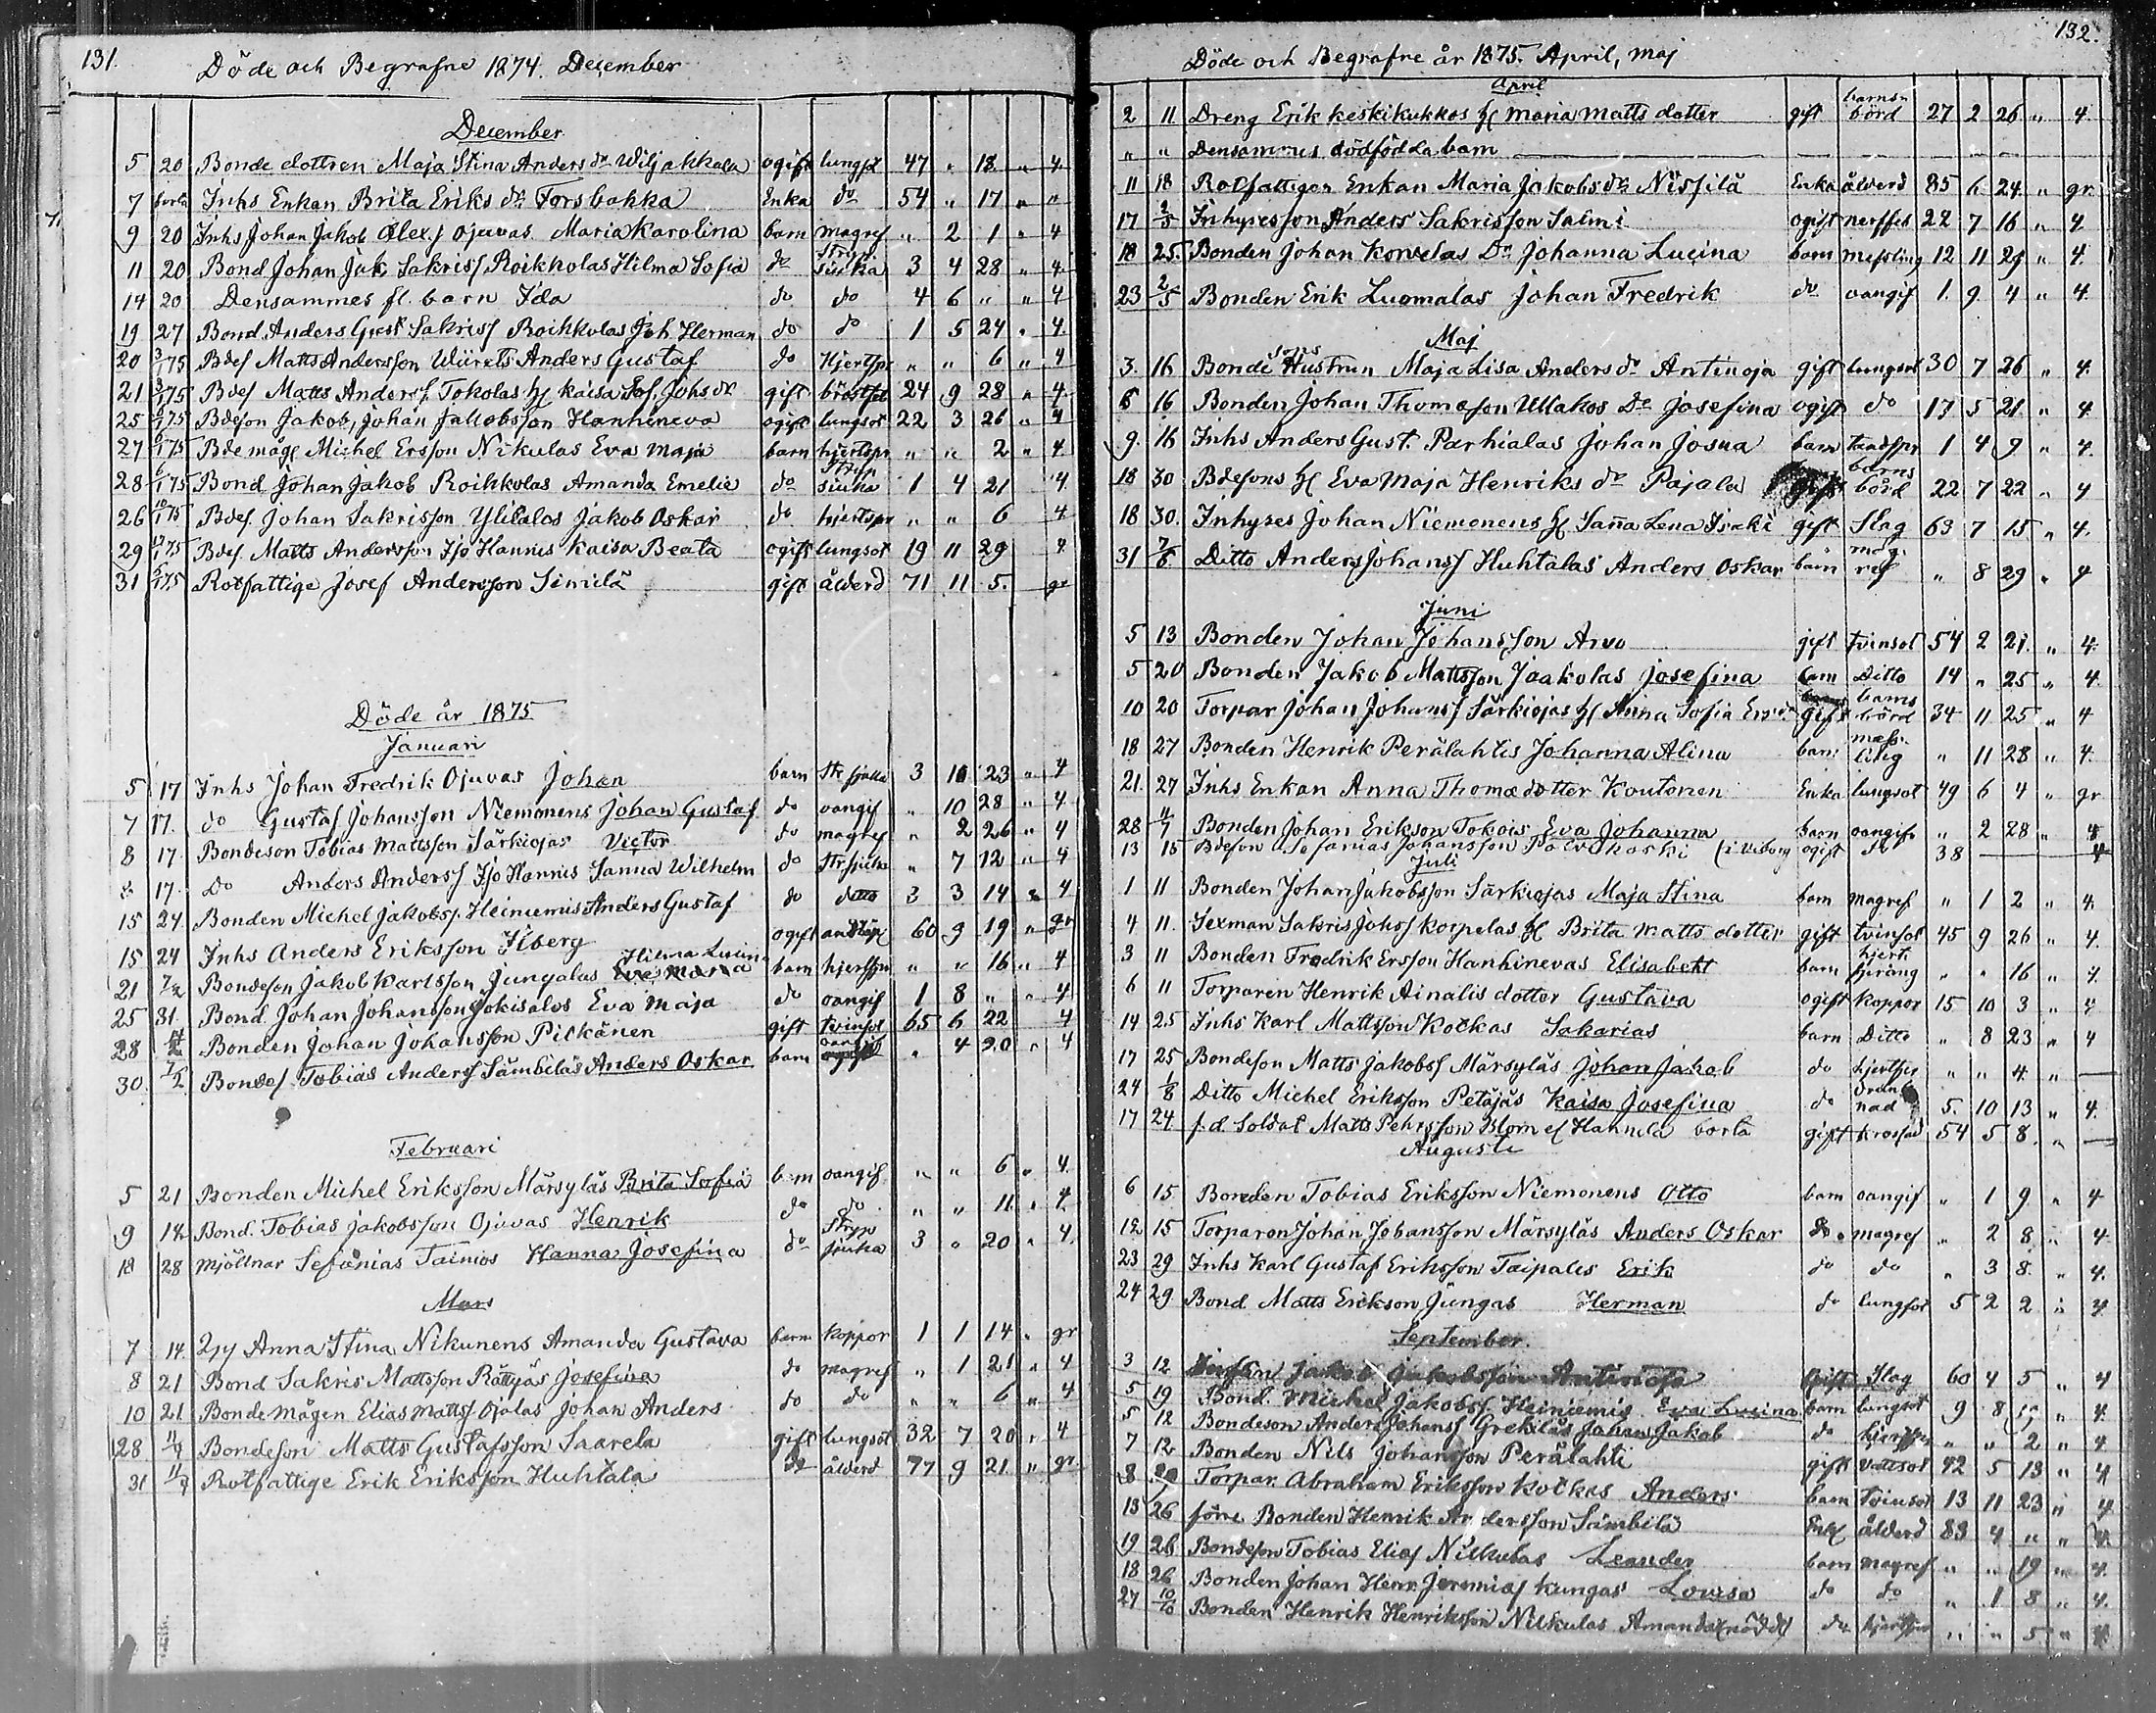 131.
Döde och Begrafne 1874. December
December
5 20 Bonde dottren Maja Stina Anders dr Wiljakkala ogift lungst 47 " 18 " 4
7 borta Inhs Enkan Brita Eriks dr Forsbakka Enka do 54 " 17 " "
9 20 Inhs Johan Jakob Alex.s Ojuvas Maria Karolina barn magref " 2 1 " 4
11 20 Bond Johan Jak. Sakriss Roikkolas Hilma Sofia do Stryp siuka 3 4 28 " 4
14 20 Densammes fl. barn Ida do do 4 6 " " 4
19 27 Bond. Anders Gust Sakriss Roikkolas Joh Herman do do 1 5 24 " 4.
20 3/1 75 Bdes Matts Andersson Wiirets Anders Gustaf do Hjertspr " " 6 " 4
21 3/1 75 Bdes Matts Anders. Tokolas H Kaisa Sof. Johs dr gift bröstfel 24 9 28 " 4
25 6/1 75 Bdeson Jakob, Johan Jakobsson Hanhineva ogift lungsot 22 3 26 " 4
27 6/1 75 Bde måg Michel Ersson Nikulas Eva Maja barn hjertspr " " 2 " 4
28 6/1 75 Bond Johan Jakob Roikkolas Amanda Emelie do Stryp siuka 1 4 21 4
26 10/1 75 Bdes. Johan Sakrisson Ylitalos Jakob Oskar do hjertspr " " 6 4
29 17/1 75 Bdes. Matts Andersson Iso Hannis Kaisa Beata ogift lungsot 19 11 29 4
31 6/1 75 Rotfattige Josef Andersson Simila gift ålderd 71 11 5. gr
Döde år 1875
Januari
5 17 Inhs Johan Fredrik Ojuvas Johan barn Str sjuka 3 10 23 " 4
7 17. do Gustaf Johansson Niemonens Johan Gustaf do oangif " 10 28 " 4
8 17. Bondeson Tobias Mattsson Särkiojas Victor do magref " 2 26 " 4
8 17. do Anders Anders Iso Hannis Sanna Wilhelm do Str siuka " 7 12 " 4
15 24 Bonden Michel Jakobs. Heiniemis Anders Gustaf do ditto 3 3 14 " 4
15 24 Inhs Anders Eriksson Isberg ogift andtäp 60 9 19 " gr
21 7/2 Bondeson Jakob Karlsson Jungalas Hilma Lusin Eva Maria barn hjertspr " " 16 " 4
25 31. Bond. Johan Johansson Jokisalos Eva Maja do oangif 1 8 " " 4
28 14/2 Bonden Johan Johansson Pitkänen gift tvinsot 65 6 22 4
30. 7/2 Bondes. Tobias Anders Sämbiläs Anders Oskar barn oangif " 4 20 " 4
Februari
5 21 Bonden Michel Eriksson Märsyläs Brita Sofia barn oangif " " 6 " 4.
9 14 Bond. Tobias Jakobsson Ojuvas Henrik do do " " 11 " 4
18 28 Mjöllnar Sefanias Tainios Hanna Josefina do Stryp sjuka 3 " 20 " 4.
Mars
7 14. Qpg Anna Stina Nikunens Amanda Gustava barn koppor 1 1 14 " gr
8 21 Bond Sakris Mattsson Rättyäs Josefina do magref " 1 21 " 4
10 21 Bonde mågen Elias Matts Ojalas Johan Anders do do " " 6 " 4
28 11/4 Bondeson Matts Gustafsson Saarela gift lungsot 32 7 20 " 4
31 11/4 Rotfattige Erik Eriksson Huhtala do ålderd 77 9 21 " gr.
132.
Döde och Begrafne år 1875. April, Maj
April
2 11 Dreng Erik Keskikukkos H Maria Matts dotter gift barnsbörd 27 2 26 " 4.
" " Densammes dödfödda barn
11 18 Rotfattigen Enkan Maria Jakobs dr Nisfilä Enka ålderd 85 6 24 " gr.
17 2/5 Inhysesson Anders Sakrisson Salmi ogift nerffeb 22 7 16 " 4.
18 25. Bonden Johan Korvelas Dr Johanna Lucina barn messling 12 11 29 " 4.
23 2/5 Bonden Erik Luomalas Johan Fredrik do oangif 1. 9 4 " 4.
Maj
3. 16 Bonde sons Hustrun Maja Lisa Anders dr Antinoja gift lungsot 30 7 26 " 4.
6 16 Bonden Johan Thomasson Ullakos Dr Josefina ogift do 17 5 21 " 4
9. 16 Inhs Anders Gust. Parhialas Johan Josua barn tandspr 1 4 9 " 4.
18 30 Bdesons H Eva Maja Henriks dr Pajala gift barnsbörd 22 7 22 " 4
18 30. Inhyses Johan Niemonens H Sanna Lena Isaks gift Slag 63 7 15 " 4.
31 7/6 Ditto Anders Johanss Huhtalas Anders Oskar barn magref " 8 29 " 4
Juni
5 13 Bonden Johan Johansson Arvo gift tvinsot 54 2 21. " 4.
5 20 Bonden Jakob Mattsson Jaakolas Josefina barn Ditto 14 " 25 " 4.
10 20 Torpar Johan Johans Särkiojas H Anna Sofia Ersdr gift barnsbörd 34 11 25 " 4
18 27 Bonden Henrik Perälahtis Johanna Alina barn mässling " 11 28 " 4.
21. 27 Inhs Enkan Anna Thomædotter Koutonen Enka lungsot 49 6 4 " gr
28 11/7 Bonden Johan Erikson Tokois Eva Johanna barn oangif " 2 28 " 4
13 15 Bdeson Sefanias Johansson Palvakoski (i Viborg ogift do 38 4
Juli
1 11 Bonden Johan Jakobsson Särkiojas Maja Stina barn magref " 1 2 " 4.
4 11. Sexman Sakris Johss Korpelas H Brita Matts dotter gift tvinsot 45 9 26 " 4.
3 11 Bonden Fredrik Ersson Hanhinevas Elisabeth barn hjertspräng " " 16 " 4.
6 11 Torparen Henrik Ainalis dotter Gustava ogift koppor 15 10 3 " 4
14 25 Inhs Karl Mattsson Kotkas Sakarias barn Ditto " 8 23 " 4
17 25 Bondeson Matts Jakobss Märsyläs Johan Jakob do hjertspr " " 4. "
24 1/8 Ditto Michel Eriksson Petäjäs Kaisa Josefina do Drunknad 5. 10 13 " 4.
17 24 f.d. Soldat Matts Pehrsson Blom el Hannila borta gift krossad 54 5 8. "
Augusti
6 15 Bonden Tobias Eriksson Niemonens Otto barn oangif " 1 9 " 4
12 15 Torparen Johan Johansson Märsyläs Anders Oskar do. magref " 2 8 " 4.
23 29 Inhs Karl Gustaf Eriksson Taipales Erik do do " 3 8. " 4.
24 29 Bond Matts Erickson Jungas Herman do lungsot 5 2 2 " 4
September.
3 12 Jakob Jakobsson Antinoja Gift Slag 60 4 5 " 4
5 19 Bond. Michel Jakobs. Heiniemis Eva Lucina barn lungsot 9 8 " 4.
5 12 Bondeson Anders Johans Grekiläs Johan Jakob do hjertspr " " 2 " 4
7 12. Bonden Nils Johansson Perälahti gift vattsot 42 5 13 " 4
8 Torpar. Abraham Eriksson Kotkas Anders barn tvinsot 13 11 23 " 4.
13 26 förre Bonden Henrik Andersson Sämbilä Enkl ålderd 83 4 " " 4.
19 26 Bondeson Tobias Elias Nikulas Leander barn magref " " 19 " 4.
18 26 Bonden Johan Henr. Jeremias Kungas Lovisa do do " 1 8 " 4.
27 10/10 Bonden Henrik Henriksson Nikulas Amanda (nöddt) do hjertspr " " 5 " 4